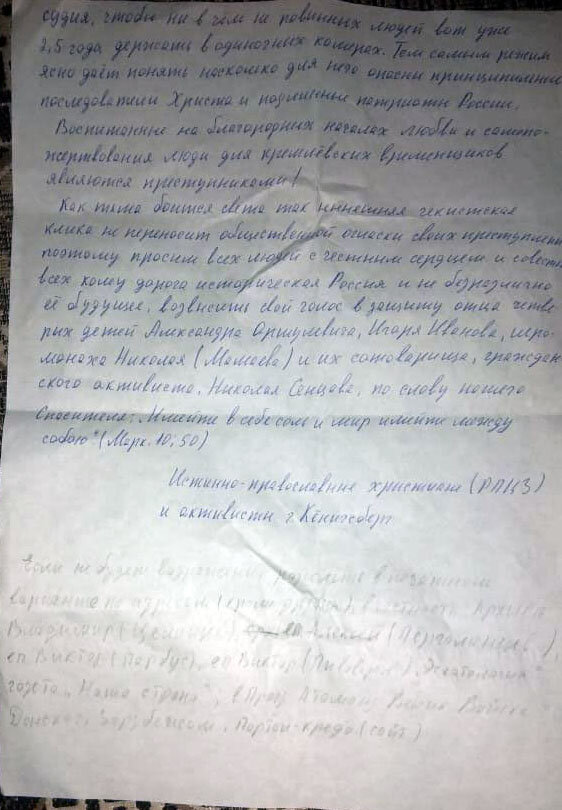 судия, чтобы ни в чем не повинных людей вот уже
2,5 года держать в одиночных камерах. Тем самым режим
ясно даёт понять насколько для него опасны принципиальные
последователи Христа и подлинные патриоты России.
Воспитанные на благородных началах любви и самопо-
жертвования люди для кремлёвских временщиков
являются преступниками!
Как тьма боится света так нынешняя чекистская
клика не переносит общественной огласки своих преступлений
поэтому просим всех людей с честным сердцем и совестью
всех кому дорога историческая Россия и не безразлично
её будущее, возвысить свой голос в защиту отца четве-
рых детей Александра Оршулевича, Игоря Иванова, иеро-
монаха Николая (Мамаева) и их сотоварища, граждан
ского активиста, Николая Сенцова, по слову нашего
Спасителя: „Имейте в себе соль и мир имейте между
собою" (Марк. 10; 50)
Истинно-православные христиане (РПЦЗ)
и активисты г. Кёнигсберг
Если не будет возражений в печатном
варианте по адресам
Владимир (Целищев), еп Алексей (Пергаменцев),
еп Виктор (Парбус), еп Виктор (Пивоваров), Эсхатология"
газета „Наша страна",
Донского Зарубежом, Портал-кредо (сайт)